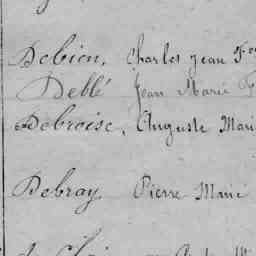 Debien, Charles Jean
Deblé Jean Marie
Debroise, Auguste Mari
Debray Pierre Marie